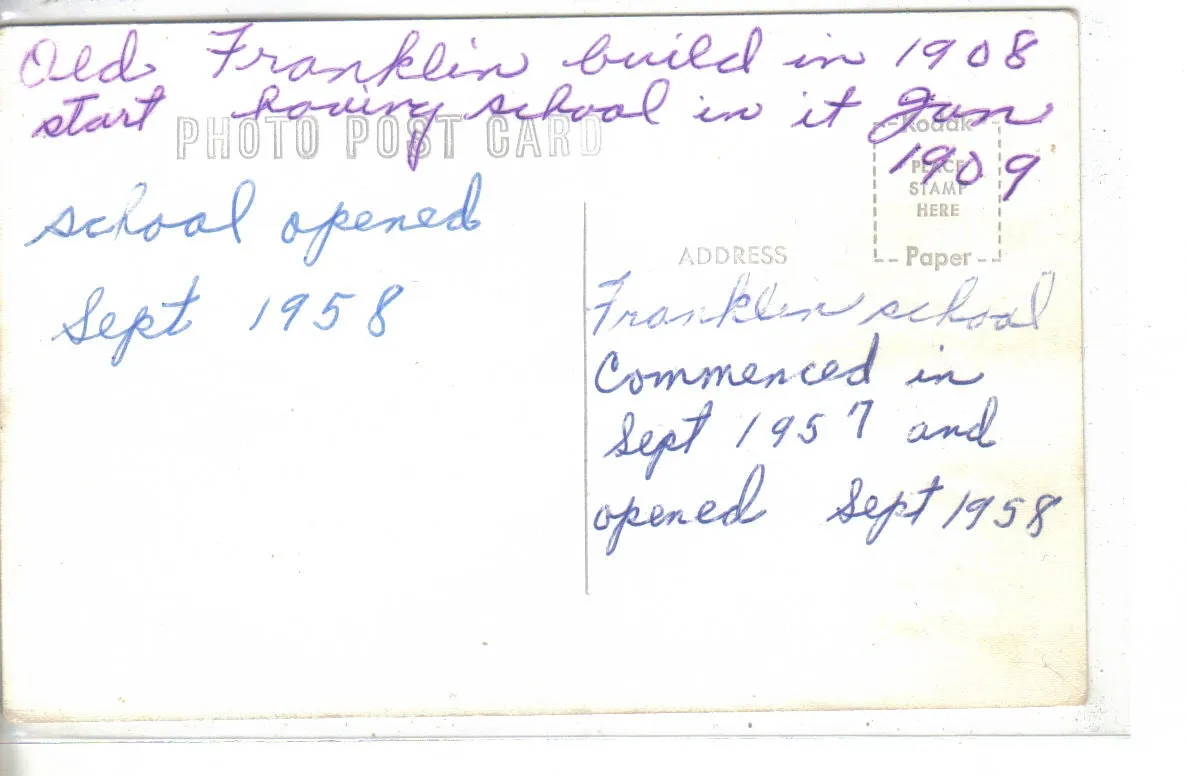 Old Franklin build in 1908
start having school in it Jan
1909
PHOTO POST CARD
school opened
Sept 1958
Kodak
PLACE
STAMP
HERE
Paper
ADDRESS
Franklin school
Commenced in
Sept 1957 and
opened Sept 1958